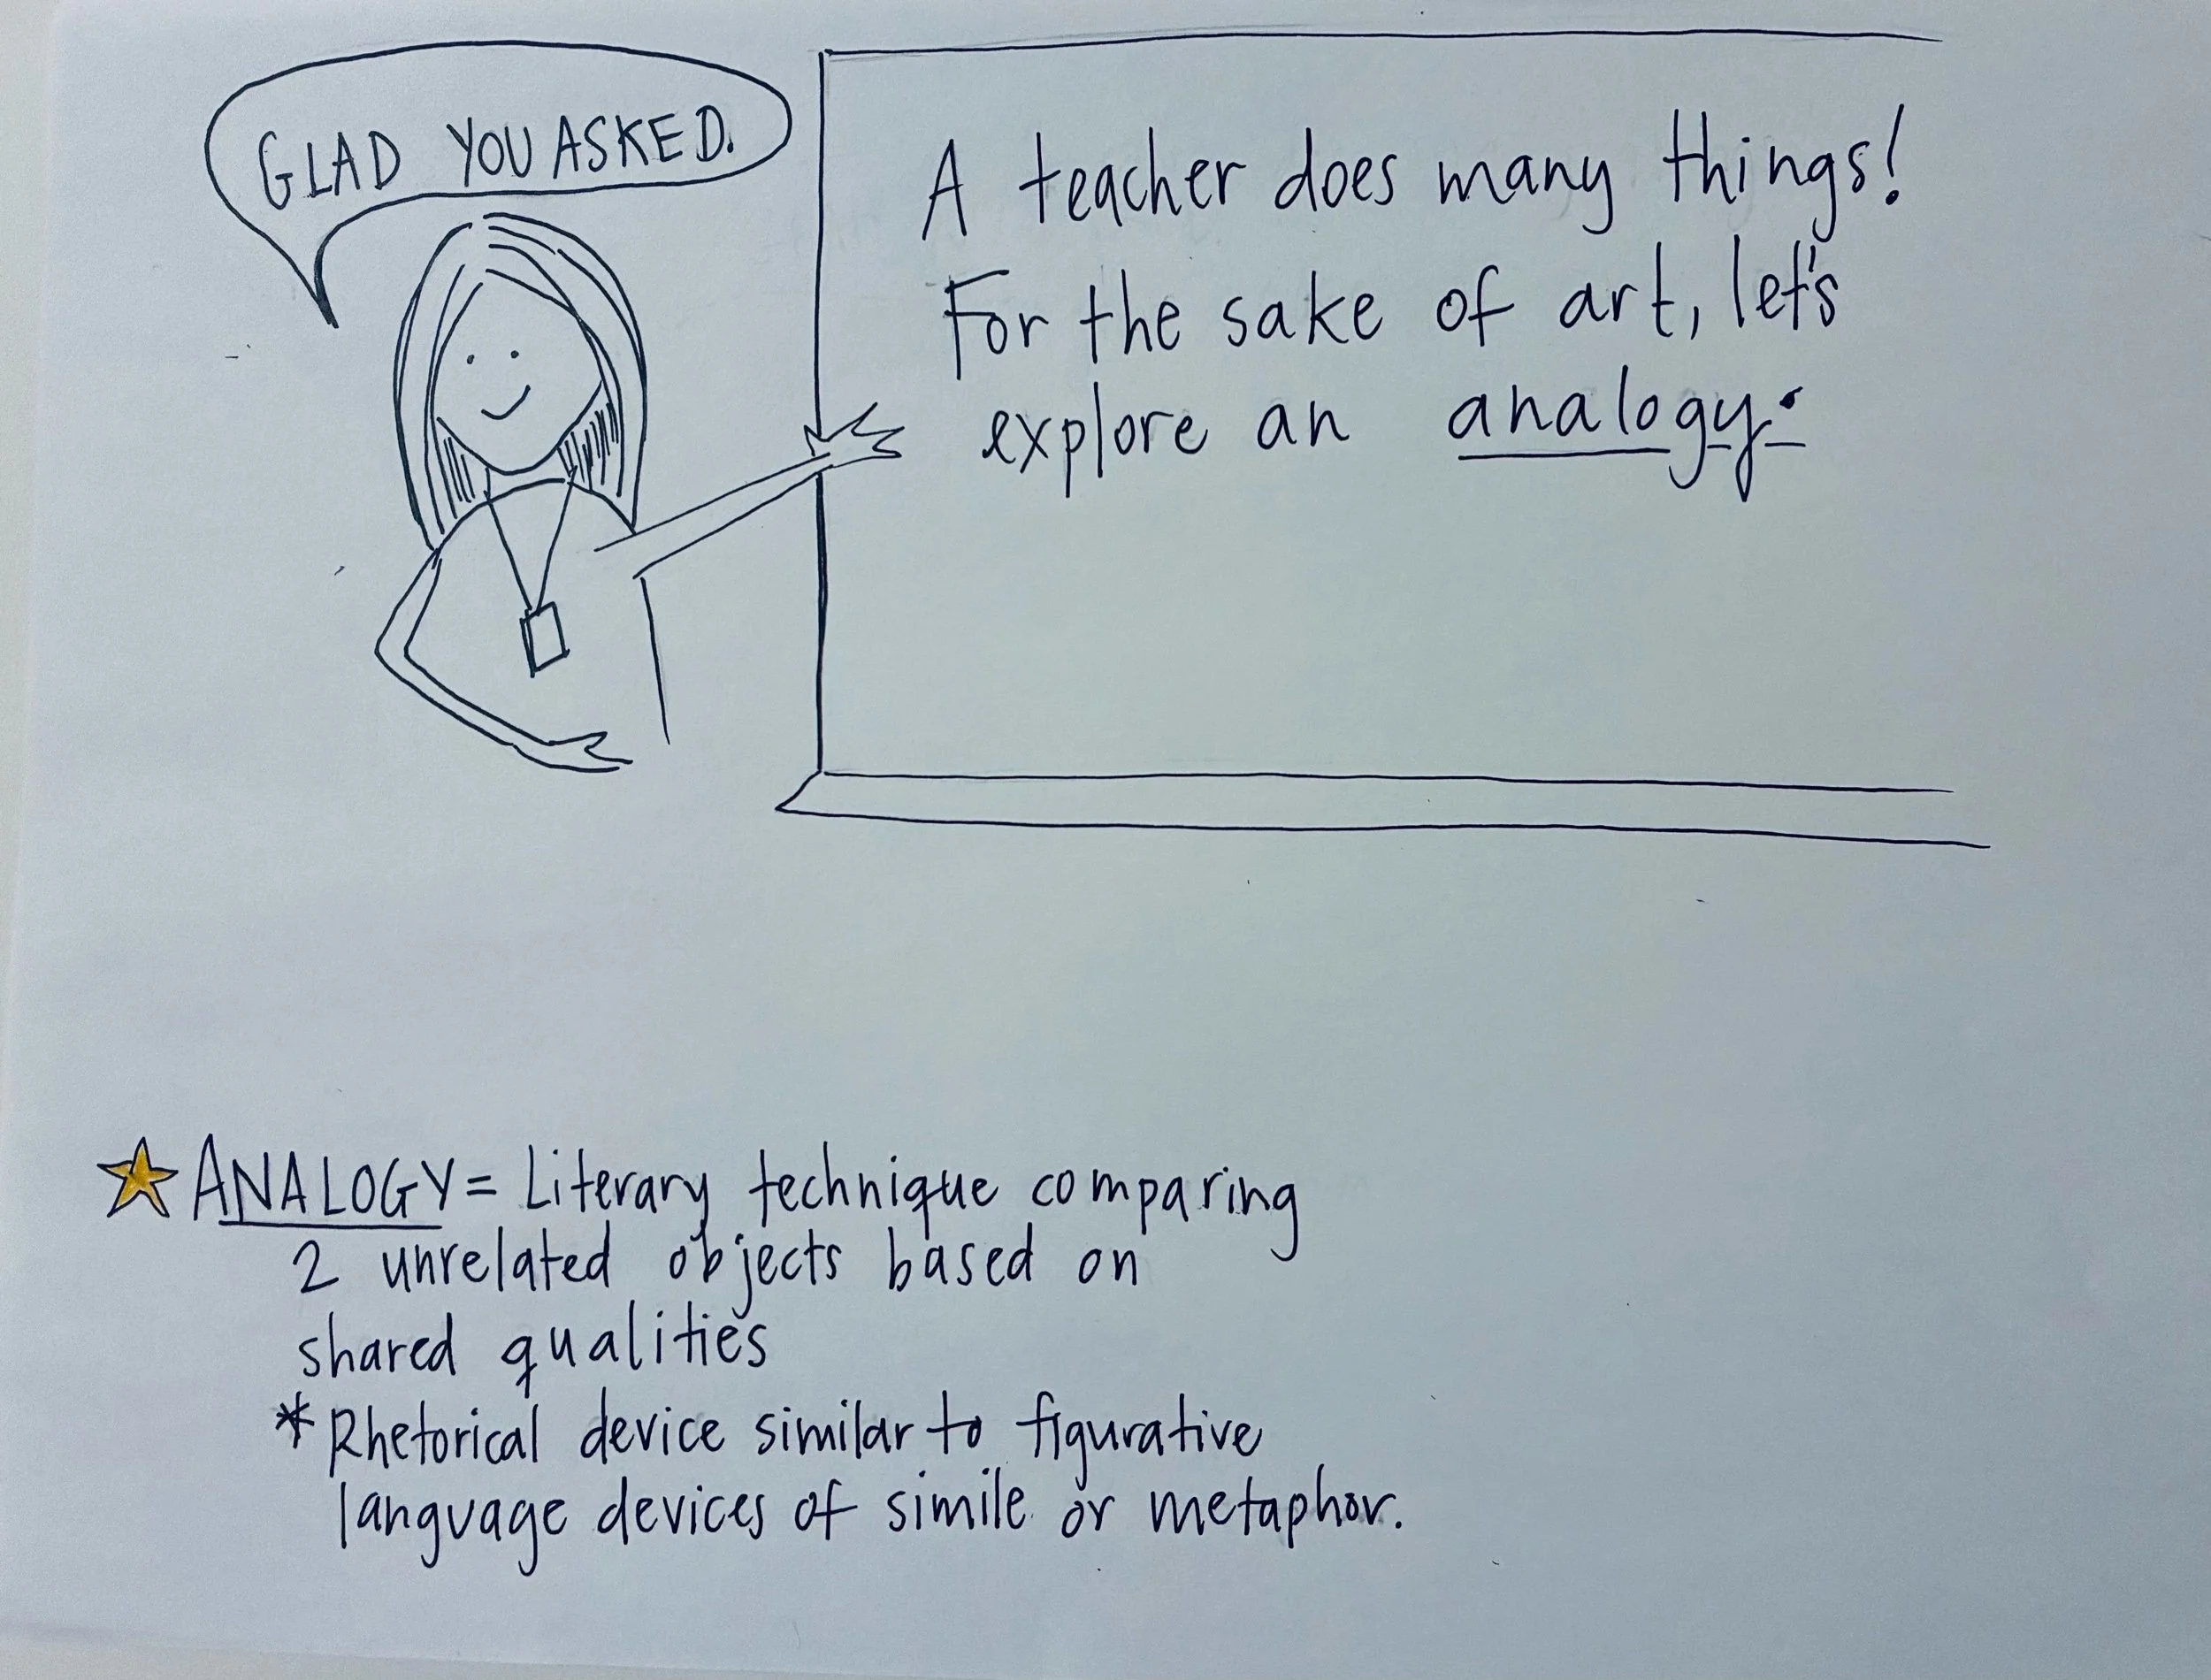 GLAD YOU ASKED.
A teacher does many things!
For the sake of art, let's
explore an analogy:
ANALOGY = Literary technique comparing
2 unrelated objects based on
shared qualities
* Rhetorical device similar to figurative
language devices of simile or metaphor.